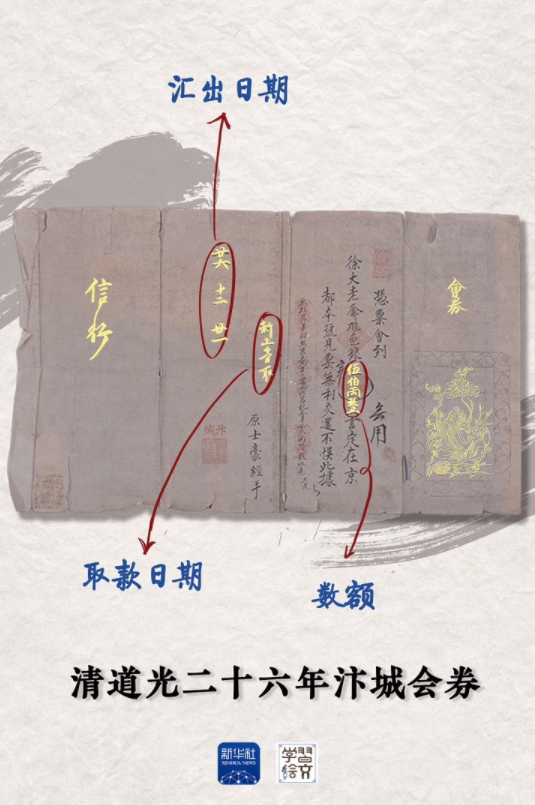 汇出日期
會券
憑票會到
无用
徐大老爺色銀伍伯兩整言定在京
都本號見票無利交還不悮此據
原士豪經手
新正取
廿六 十二 廿一
汴城
信行
取款日期
数额
清道光二十六年汴城会券
新华社
XINHUA NEWS
学习绘文